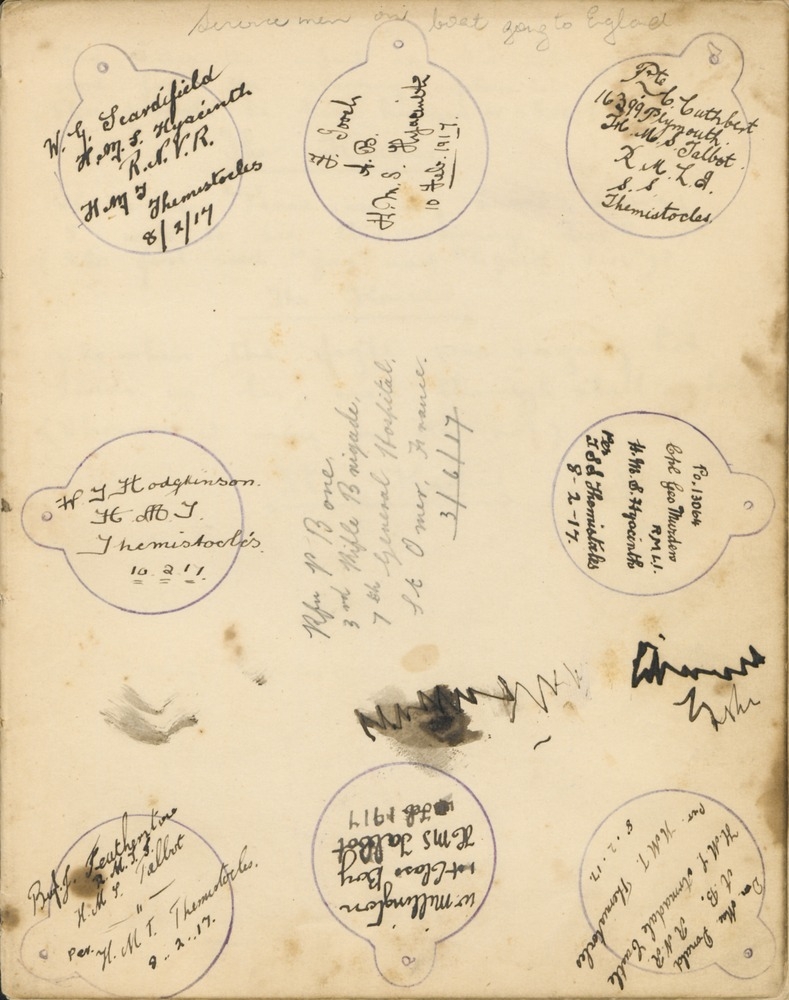 Service men on boat going to England
W. G. Scardifield
H.M.S. Hyacinth
R.N.V.R.
H.M.T Themistocles
8/2/17
F. Gooch
A.B.
H.M.S. Hyacinth
10 Feb. 1917.
Pte C. Cuthbert
16299 Plymouth.
H.M.S. Talbot.
R.M.L.I.
S.S
Themistocles
W J Hodgkinson.
H M T.
Themistocles.
10 2 17.
Rfn P Bone.
3rd Rifle Brigade,
7th General Hospital.
St Omer, France.
3/6/17
Po. 13064
Cpl Geo Murden
R M L I.
H.M.S. Hyacinth
per
T S S Themistocles
8-2-17.
R.M.L.I.
H.M.S. Talbot
"
per. H.M.T. Themistocles.
8..2..17.
W Millington
1st Class Boy
HMS Talbot
Feb 1917
Donald
A.B. R.N.R.
H.M.S Armadale Castle
per. H.M.T. Themistocles
8.2.17